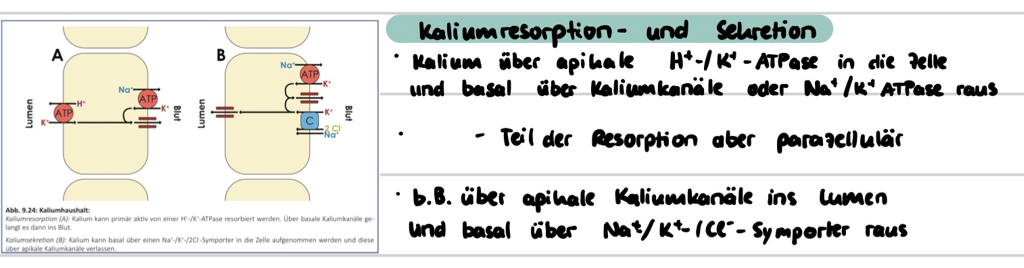 A
B
Na⁺
ATP
H⁺
ATP
K⁺
K⁺
Lumen
Blut
Na⁺
ATP
K⁺
K⁺
C
2 Cl⁻
Na⁺
Lumen
Blut
Abb. 9.24: Kaliumhaushalt:
Kaliumresorption (A): Kalium kann primär aktiv von einer H⁺-/K⁺-ATPase resorbiert werden. Über basale Kaliumkanäle ge-
langt es dann ins Blut.
Kaliumsekretion (B): Kalium kann basal über einen Na⁺-/K⁺-/2Cl⁻-Symporter in die Zelle aufgenommen werden und diese
über apikale Kaliumkanäle verlassen.
Kaliumresorption - und Sekretion
• Kalium über apikale H⁺-/K⁺-ATPase in die Zelle
und basal über Kaliumkanäle oder Na⁺/K⁺ ATPase raus
•
- Teil der Resorption aber parazellulär
• b.B. über apikale Kaliumkanäle ins Lumen
und basal über Na⁺/K⁺-/Cl⁻-Symporter raus